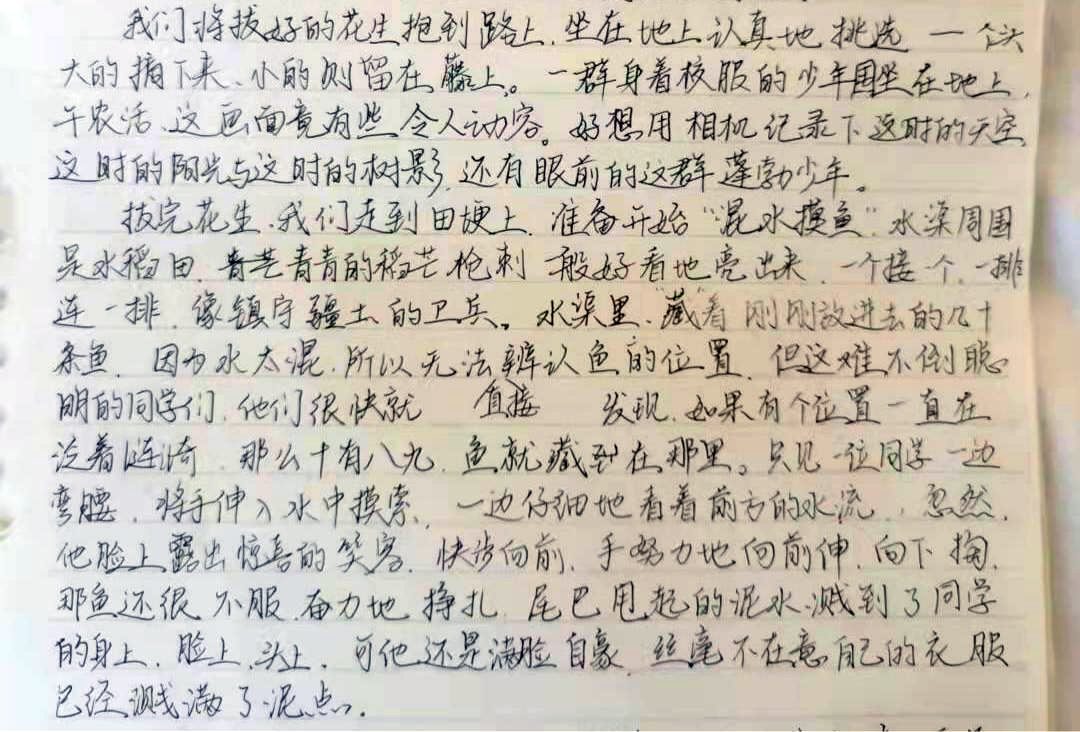 我们将拔好的花生抱到路上，坐在地上认真地挑选，一个个头
大的摘下来、小的则留在藤上。一群身着校服的少年围坐在地上，
干农活，这画面竟有些令人动容。好想用相机记录下这时的天空，
这时的阳光与这时的树影，还有眼前的这群蓬勃少年。
拔完花生，我们走到田埂上，准备开始“混水摸鱼”，水渠周围
是水稻田，青芒青青的稻芒枪刺一般好看地亮出来，一个接一个，一排
连一排，像镇守疆土的卫兵。水渠里“藏”着刚刚放进去的几十
条鱼，因为水太混，所以无法辨认鱼的位置，但这难不倒聪
明的同学们，他们很快就直接发现，如果有个位置一直在
泛着涟漪，那么十有八九，鱼就藏到在那里。只见一位同学一边
弯腰，将手伸入水中摸索，一边仔细地看着前方的水流，忽然，
他脸上露出惊喜的笑容，快步向前，手努力地向前伸，向下掏，
那鱼还很不服，奋力地挣扎，尾巴甩起的泥水溅到了同学
的身上，脸上，头上，可他还是满脸自豪，丝毫不在意自己的衣服
已经溅满了泥点。